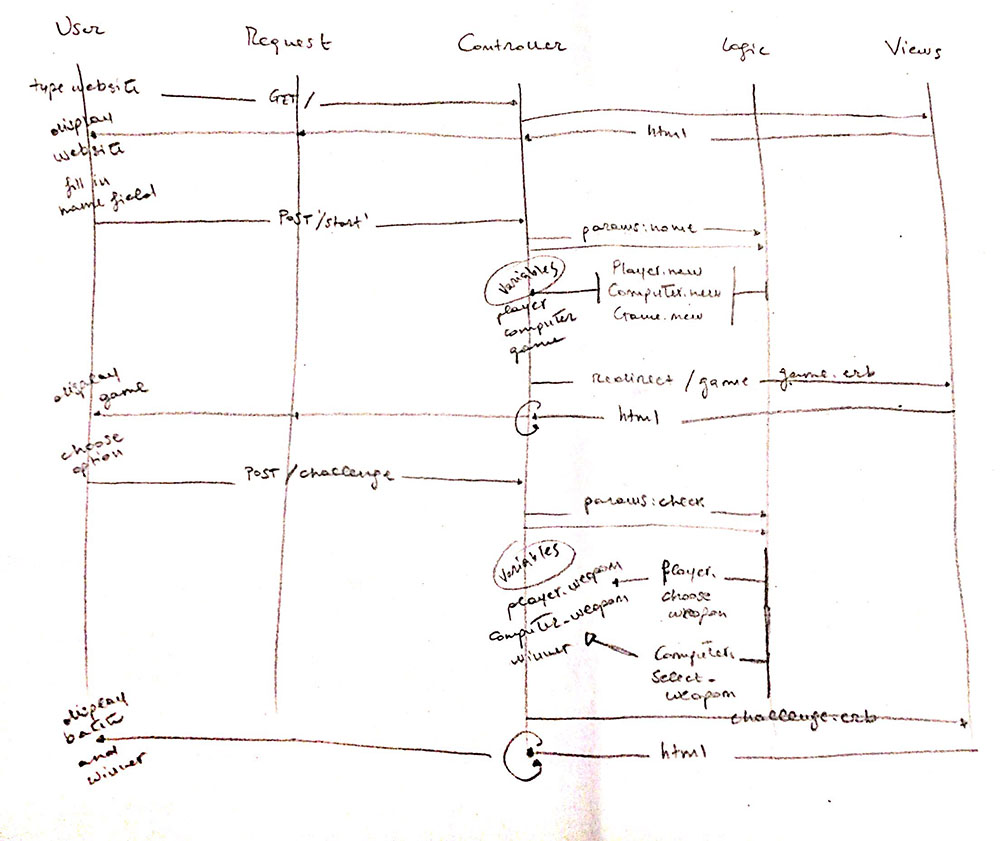 User
Request
Controller
Logic
Views
type website
GET /
display
website
html
fill in
name field
POST '/start'
params:name
Variables
player
computer
game
Player.new
Computer.new
Game.new
display
game
redirect /game
game.erb
html
choose
option
POST /challenge
params:check
Variables
player.weapon
computer_weapon
winner
Player.
choose
weapon
Computer.
select_
weapon
display
battle
and
winner
challenge.erb
html